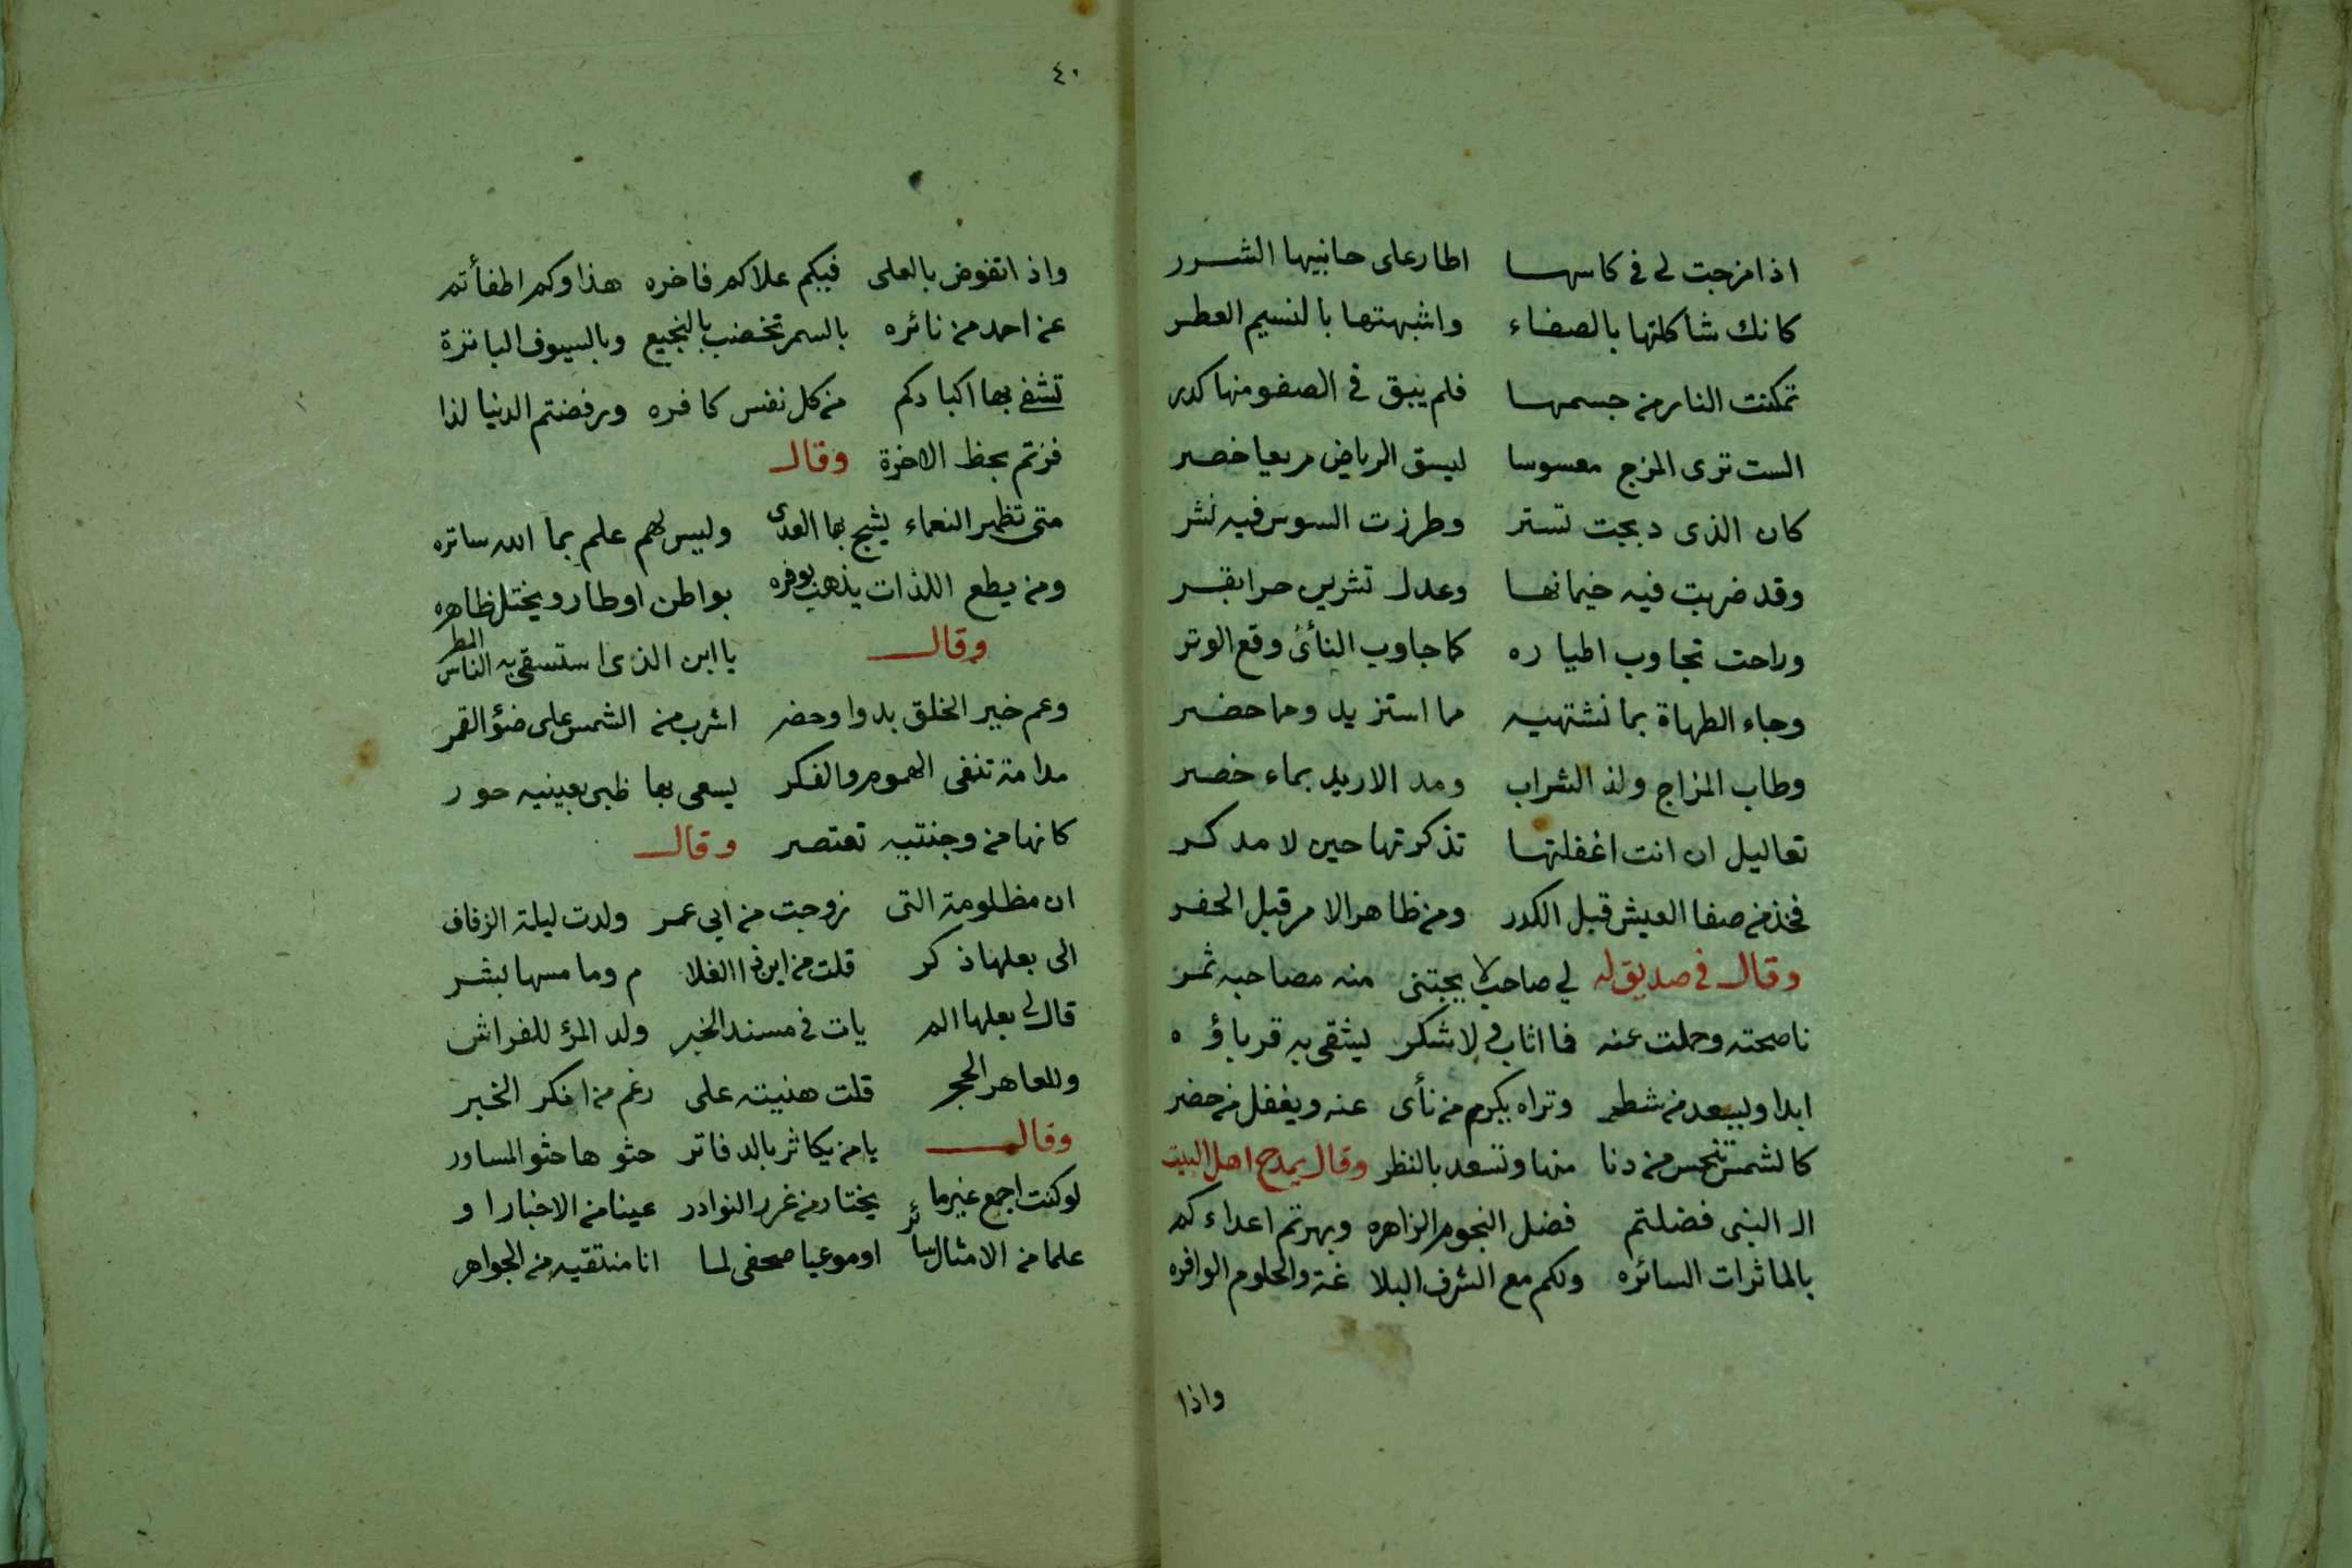 اذا مزجت لي في كاسها اطار على حانبيها الشرر
كانك شاكلتها بالصفاء واشبهتها بالنسيم العطر
تمكنت النار من جسمها فلم يبق في الصفو منها كدر
الست ترى المزج معسوسا ليسق الرياض مربعا خصر
كان الذى دبجت تستر وطرزت السوس فيه نشر
وقد ضربت فيه خيمانها وعدل تشرين حرا بقر
وراحت تجاوب اطياره كما جاوب النأى وقع الوتر
وجاء الطهاة بما نشتهيه مما استزيد وما حضر
وطاب المزاج ولذ الشراب ومد الاريد بماء خصر
تعاليل ان انت اغفلتها تذكرتها حين لا مدكر
فخذ من صفا العيش قبل الكدر ومن ظاهر الامر قبل الحفر
وقال في صديق له لي صاحب لا يجتنى منه مصاحبه ثمر
ناصحته وحملت عنه فا اثاب ولا شكر ليشقى به قرباؤه
ابدا ويسعد من شطر وتراه يكرم من نأى عنه ويغفل من حضر
كالشمس تنحس من دنا منها وتسعد بالنظر وقال يمدح اهل البيت
ال النبى فضلتم فضل النجوم الزاهره وبهرتم اعداءكم
بالماثرات السائره ولكم مع الشرف البلا غة والحلوم الوافره
واذا
٤٠
واذ اتفوض بالعلى فيكم علاكم فاخره هذا وكم اطفأتم
عن احمد من نائره بالسمر تخضب بالنجيع وبالسيوف الباترة
تشفى بها اكبادكم من كل نفس كافره ورفضتم الدنيا لذا
فزتم بحظ الاخرة وقال
متى تظهر النعماء يشج بها العدى وليس لهم علم بما الله ساتره
ومن يطع اللذات يذهب بوفره بواطن اوطار ويختل ظاهره
وقال يا ابن الذى استسقى به الناس المطر
وعم خير الخلق بدوا وحضر اشرب من الشمس على ضؤ القمر
مدامة تنفى الهموم والفكر يسعى بها ظبى بعينيه حور
كانها من وجنتيه تعتصر وقال
ان مظلومة التى زوجت من ابي عمر ولدت ليلة الزفاف
الى بعلها ذكر قلت من اين ذا الغلا م وما مسها بشر
قال لي بعلها الم يات في مسند الخبر ولد المرؤ للفراش
وللعاهر الحجر قلت هنيته على رغم من انكر الخبر
وقال يا من يكاثر بالدفاتر حثو ها حثو المساور
لو كنت اجمع غير ما يختار من غرر النوادر عينا من الاخبار ا و
علما من الامثال سائر او موعيا صحفى لما انا منتقيه من الجواهر